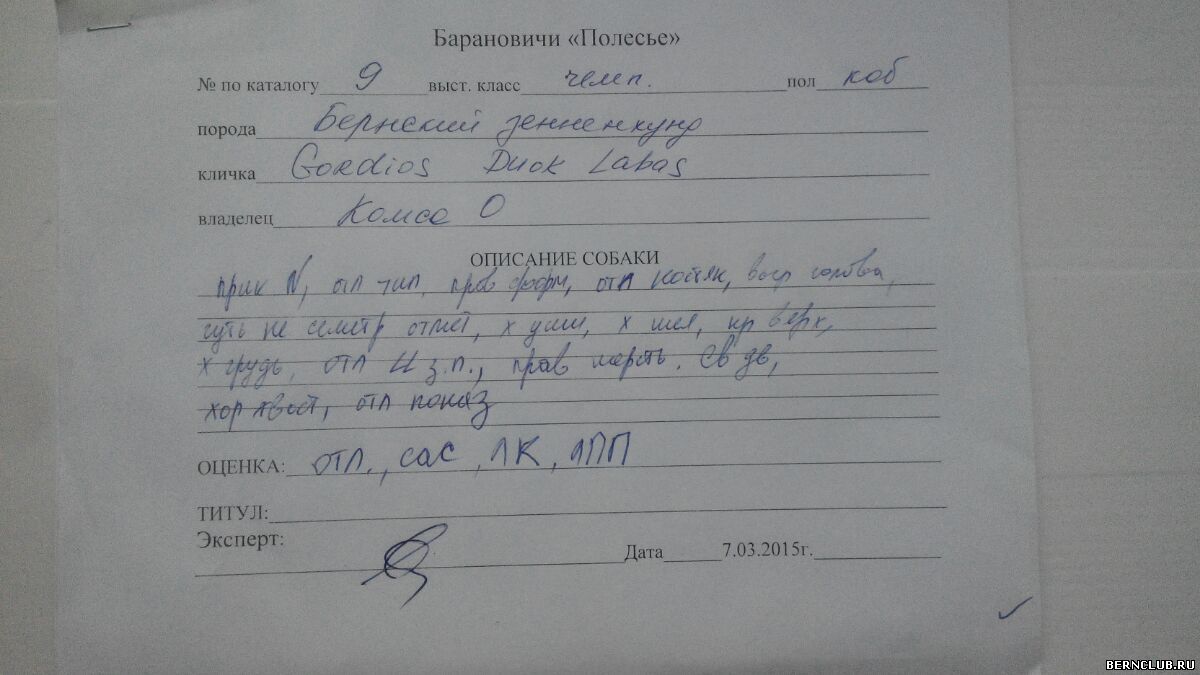 Барановичи «Полесье»
№ по каталогу 9 выст. класс чемп. пол коб
порода Бернский зенненхунд
кличка Gordios Duok Labas
владелец Комса О
ОПИСАНИЕ СОБАКИ
прик N, отл тип, прав форм, отл костяк, выр голова,
чуть не семетр отмет, х уши, х шея, кр верх,
х грудь, отл У з.п., прав шерсть. Св дв,
хор хвост, отл показ
ОЦЕНКА: отл., САС, ЛК, ЛПП
ТИТУЛ:
Эксперт:
Дата 7.03.2015г.
BERNCLUB.RU